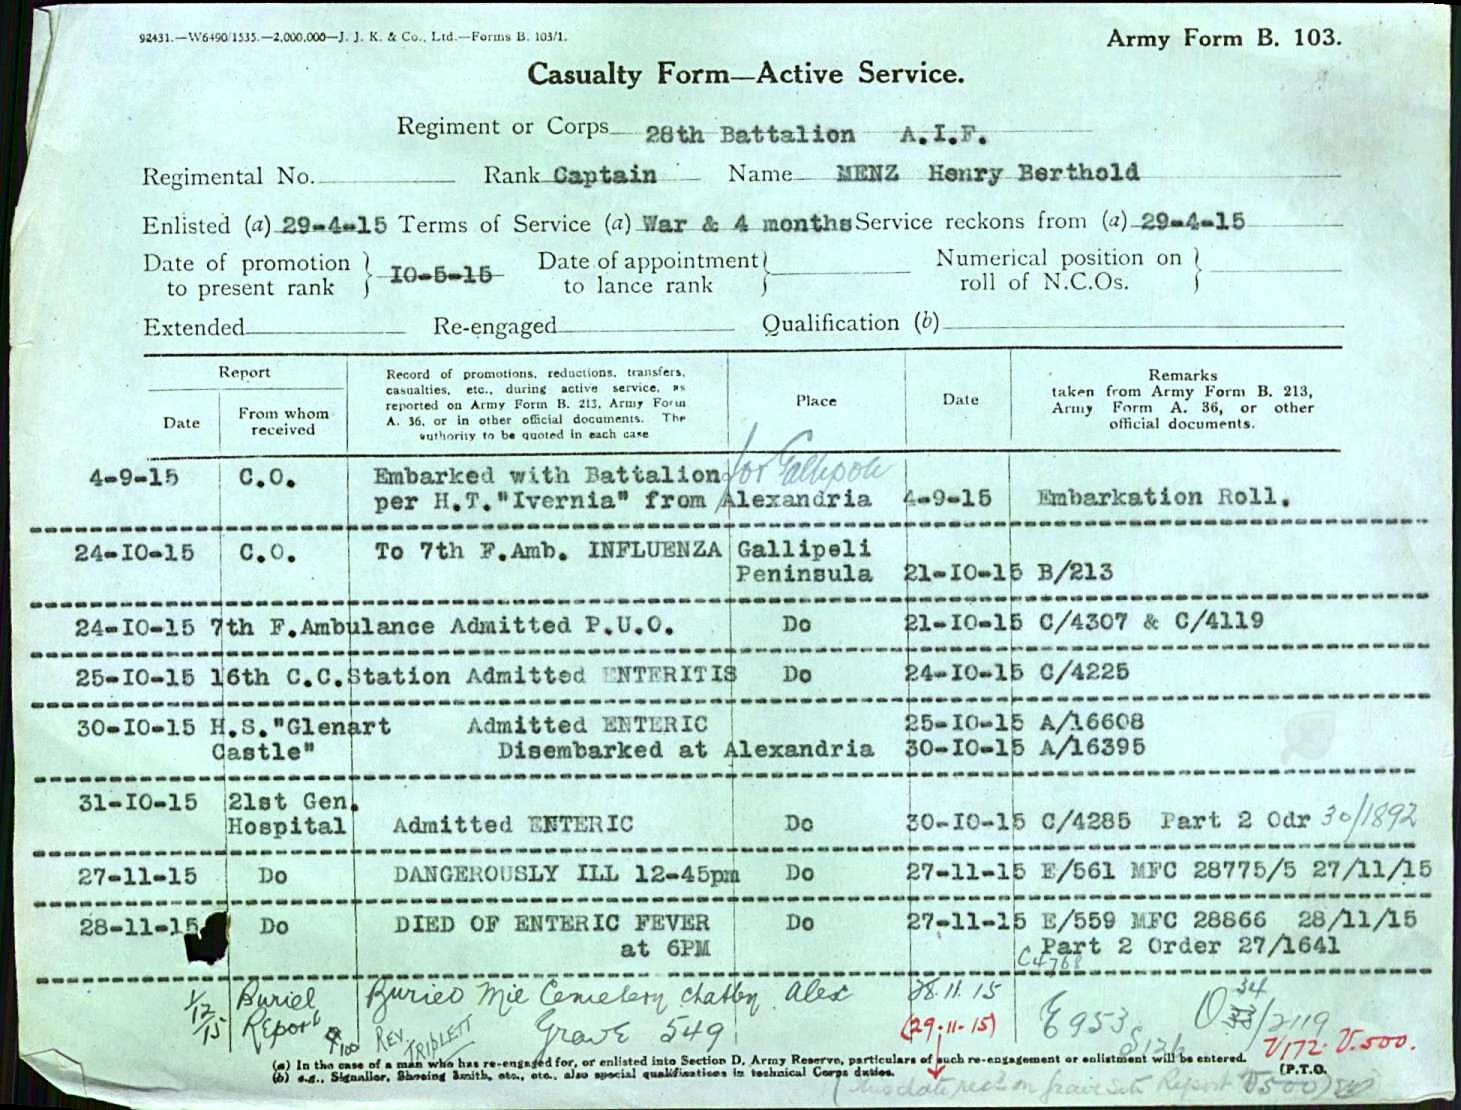 92431.—W6490/1535.—2,000,000—J. J. K. & Co., Ltd.—Forms B. 103/1.
Army Form B. 103.
Casualty Form—Active Service.
Regiment or Corps 28th Battalion A.I.F.
Regimental No. Rank Captain Name MENZ Henry Berthold
Enlisted (a) 29-4-15 Terms of Service (a) War & 4 months Service reckons from (a) 29-4-15
Date of promotion to present rank } 10-5-15 Date of appointment to lance rank } Numerical position on roll of N.C.Os. }
Extended Re-engaged Qualification (b)
Report
Date
From whom received
Record of promotions, reductions, transfers,
casualties, etc., during active service, as
reported on Army Form B. 213, Army Form
A. 36, or in other official documents. The
authority to be quoted in each case
Place
Date
Remarks
taken from Army Form B. 213,
Army Form A. 36, or other
official documents.
4-9-15 C.O. Embarked with Battalion for Gallipoli
per H.T."Ivernia" from Alexandria 4-9-15 Embarkation Roll.
24-10-15 C.O. To 7th F.Amb. INFLUENZA Gallipeli
Peninsula 21-10-15 B/213
24-10-15 7th F.Ambulance Admitted P.U.O. Do 21-10-15 C/4307 & C/4119
25-10-15 16th C.C.Station Admitted ENTERITIS Do 24-10-15 C/4225
30-10-15 H.S."Glenart Admitted ENTERIC 25-10-15 A/16608
Castle" Disembarked at Alexandria 30-10-15 A/16395
31-10-15 21st Gen.
Hospital Admitted ENTERIC Do 30-10-15 C/4285 Part 2 Odr 30/1892
27-11-15 Do DANGEROUSLY ILL 12-45pm Do 27-11-15 E/561 MFC 28775/5 27/11/15
28-11-15 Do DIED OF ENTERIC FEVER Do 27-11-15 E/559 MFC 28866 28/11/15
at 6PM Part 2 Order 27/1641
C4768
1/12/15 Buriel Report Buried Mil Cemetery Chatby Alex 28.11.15 E953 34/2119
Rev Triplett Grave 549 (29.11.15) S126 V172. V.500.
(a) In the case of a man who has re-engaged for, or enlisted into Section D, Army Reserve, particulars of such re-engagement or enlistment will be entered.
(b) e.g., Signaller, Shoeing Smith, etc., etc., also special qualifications in technical Corps duties. (P.T.O.